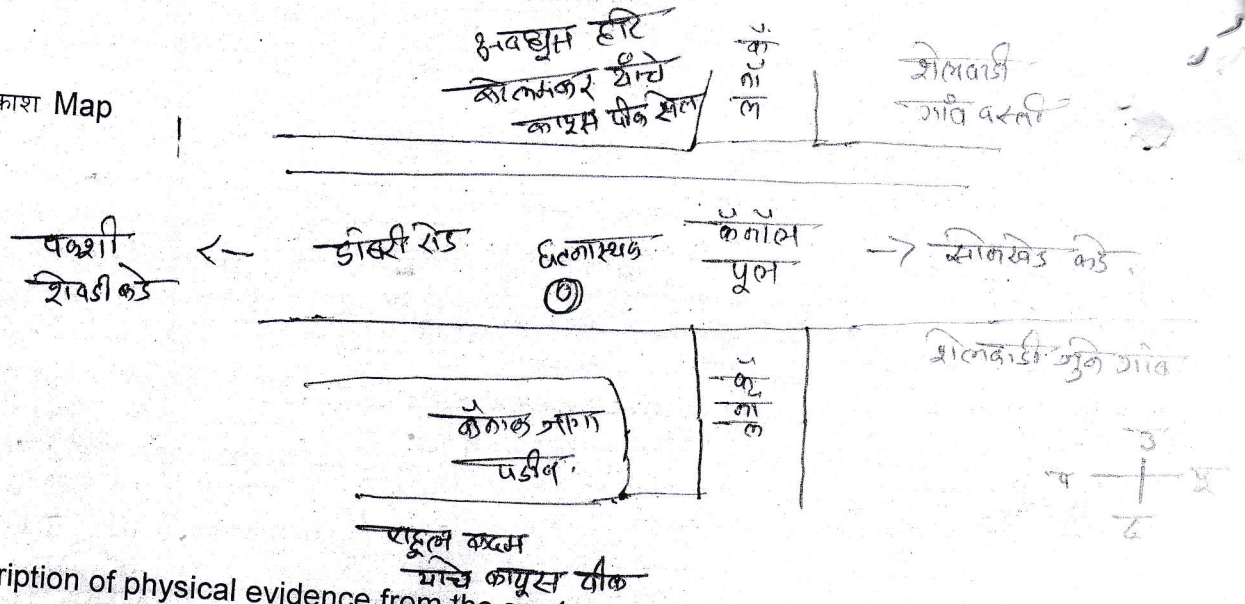 काश Map
अवधूत हरि
कोलमकर यांचे
कापूस पीक शेत
कॅ
नॉ
ल
शेलवाडी
गाव वस्ती
पक्शी
शेवडी कडे
<- डांबरी रोड
घटनास्थळ
कॅनॉल
पूल
-> सोनखेड कडे
शेलवाडी जुने गाव
कॅ
ना
ल
कॅनाल जागा
पडीत.
उ
प
पू
द
राहूल कदम
यांचे कापूस पीक
ription of physical evidence from the